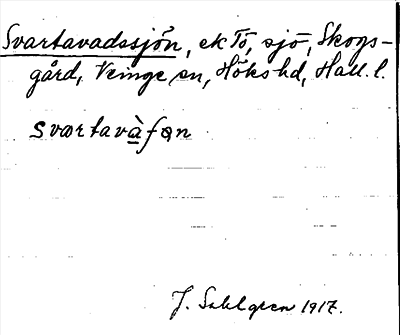 Svartavadssjön, ek Tö, sjö, Skogs-
gård, Veinge sn, Höks hd, Hall. l.
svartavàfən
J. Sahlgren 1917.